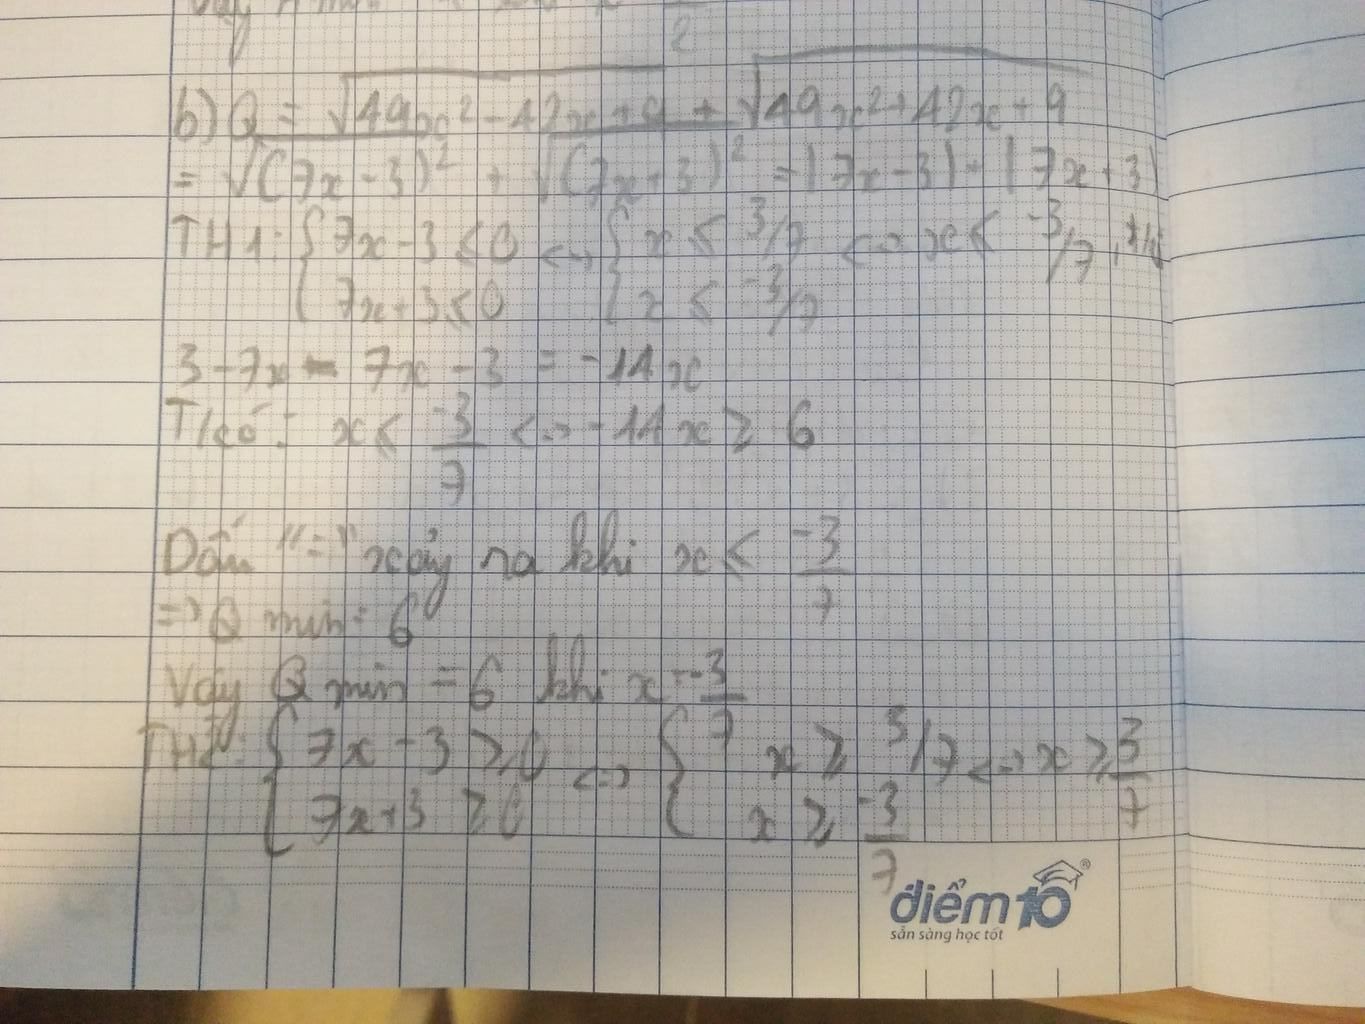 2
b) Q = √49x² - 42x + 9 + √49x² + 42x + 9
= √(7x - 3)² + √(7x + 3)² = |7x - 3| + |7x + 3|
TH1: { 7x - 3 ≤ 0 <=> { x ≤ 3/7 <=> x ≤ -3/7
7x + 3 ≤ 0 x ≤ -3/7
3 - 7x - 7x - 3 = -14x
T/có: x ≤ -3/7 <=> -14x ≥ 6
Dấu "=" xảy ra khi x ≤ -3/7
=> Q min = 6
Vậy Q min = 6 khi x = -3/7
TH2: { 7x - 3 ≥ 0 <=> { x ≥ 3/7 <=> x ≥ 3/7
7x + 3 ≥ 0 x ≥ -3/7
điểm 10®
sẵn sàng học tốt